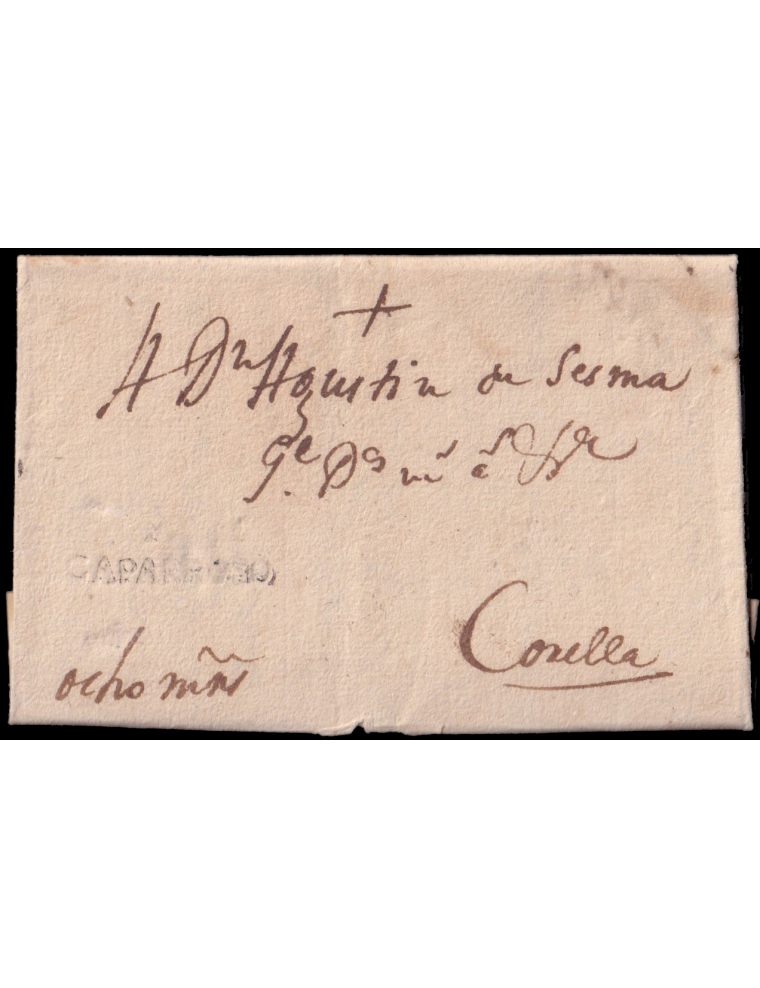 +
A Dn Agustin de Sesma
ge. Ds ms as
CAPARRO
ocho mrs
Corella